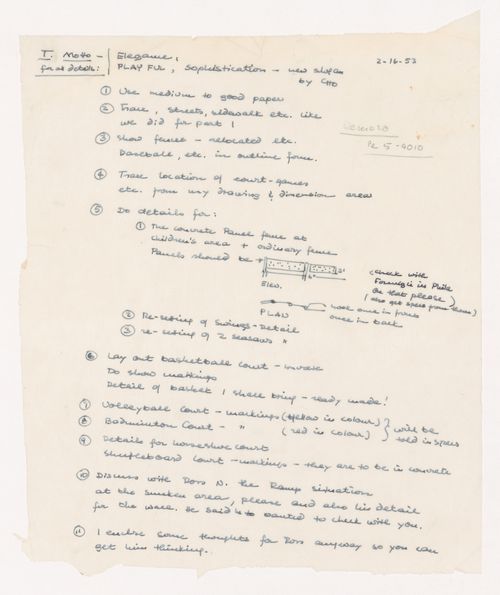 I. Motto —
for all details:
Elegance,
PLAYFUL, Sophistication — new slogan
by CHO
2-16-53
① Use medium to good paper
② Trace, streets, sidewalk etc. like
we did for part 1
③ Show fences — relocated etc.
Baseball, etc. in outline form.
Pe 5-4010
④ Trace location of court-games
etc. from my drawing & dimension areas
⑤ Do details for:
① The concrete Panel fence at
children's area + ordinary fence
Panels should be
3'
6"
ELEV.
PLAN
(check with
in Phila
on that please)
(also get specs from them)
once in front
once in back.
② Re-setting of Swings-Detail
③ re-setting of 2 seesaws "
⑥ Lay out basketball court —
Do show markings
Detail of basket I shall bring — ready made!
⑦ Volleyball Court — markings (yellow in colour)
⑧ Badminton Court — " (red in colour)
will be
told in specs
⑨ Details for horseshoe court
Shuffleboard court — markings — they are to be in concrete
⑩ Discuss with Don N. the Ramp situation
at the sunken area, please and also his detail
for the wall. He said he wanted to check with you.
⑪ I enclose some thoughts for Don anyway so you can
get him thinking.